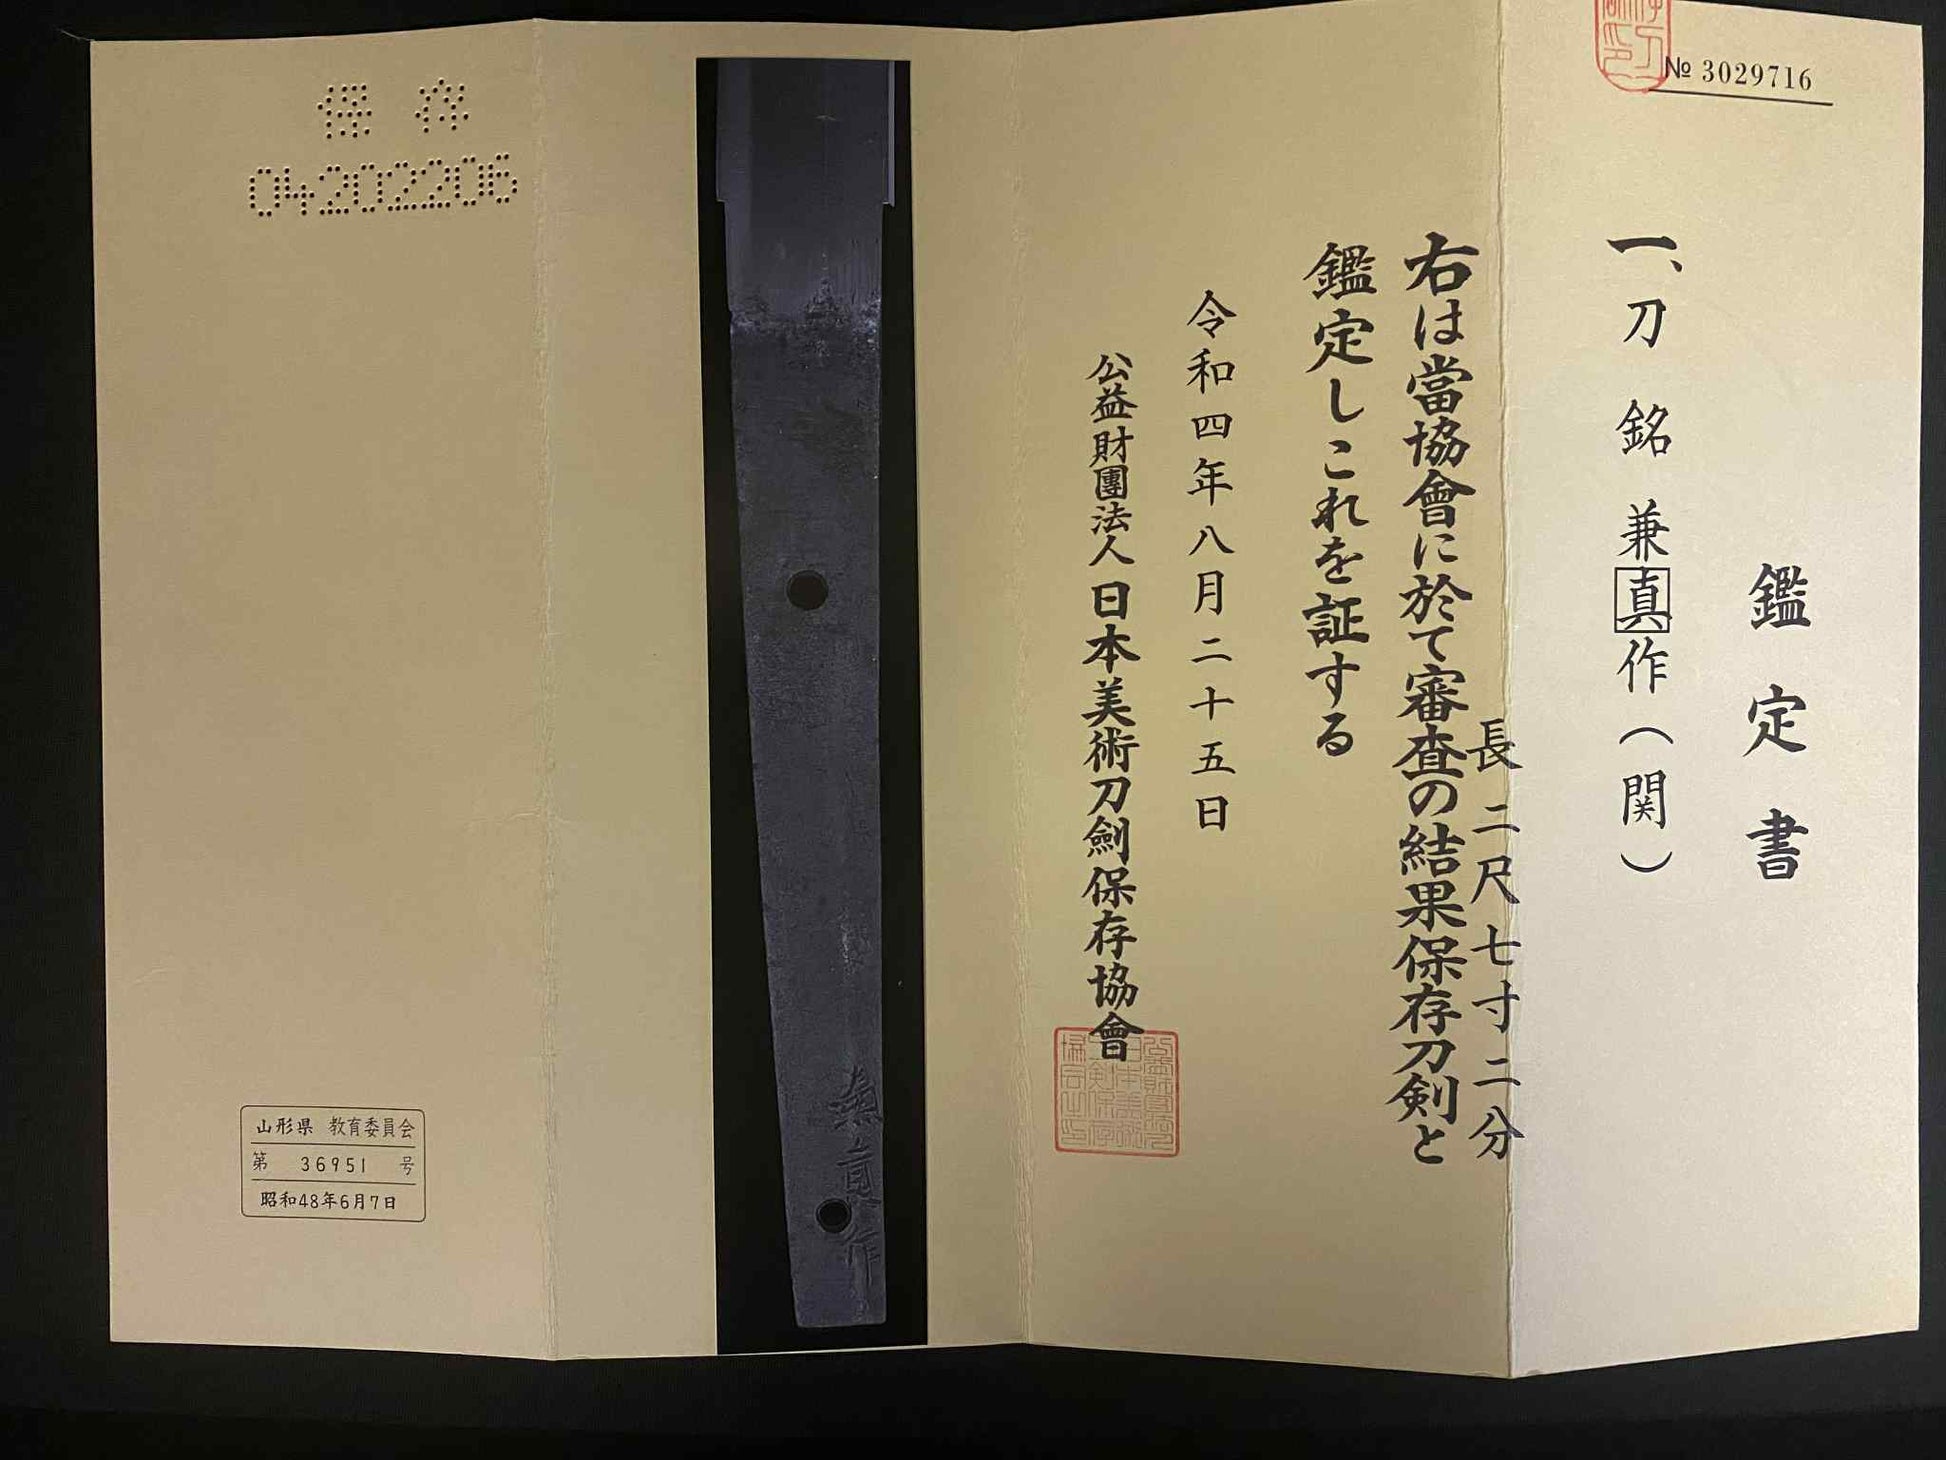 № 3029716
鑑定書
一、刀 銘 兼真作(関)
長 二尺七寸二分
右は當協會に於て審査の結果保存刀剣と
鑑定しこれを証する
令和四年八月二十五日
公益財團法人日本美術刀劍保存協會
兼真作
保存
04202206
山形県 教育委員会
第 36951 号
昭和48年6月7日